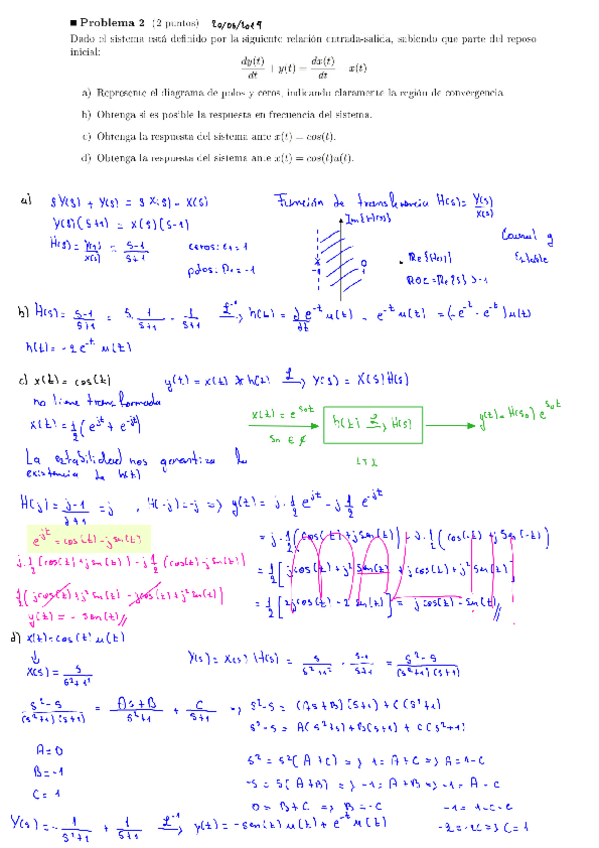 ■ Problema 2 (2 puntos) 20/06/2019
Dado el sistema está definido por la siguiente relación entrada-salida, sabiendo que parte del reposo
inicial:
dy(t)/dt + y(t) = dx(t)/dt - x(t)
a) Represente el diagrama de polos y ceros, indicando claramente la región de convergencia
b) Obtenga si es posible la respuesta en frecuencia del sistema.
c) Obtenga la respuesta del sistema ante x(t) = cos(t).
d) Obtenga la respuesta del sistema ante x(t) = cos(t)u(t).
a) sY(s) + Y(s) = sX(s) - X(s) Función de transferencia H(s) = Y(s)/X(s)
Y(s)(s+1) = X(s)(s-1) Im{H(s)}
H(s) = Y(s)/X(s) = s-1/s+1 ceros: c1 = 1 Causal y
polos: p1 = -1 -1 0 Re{H(s)} Estable
ROC = Re{s} > -1
b) H(s) = s-1/s+1 = s·1/s+1 - 1/s+1 L⁻¹→ h(t) = d/dt e^-t u(t) - e^-t u(t) = (-e^-t - e^-t) u(t)
h(t) = -2e^-t u(t)
c) x(t) = cos(t) y(t) = x(t) * h(t) L→ Y(s) = X(s) H(s)
no tiene transformada
x(t) = 1/2 (e^jt + e^-jt) x(t) = e^s0t h(t) L→ H(s) y(t) = H(s0) e^s0t
La estabilidad nos garantiza la LTI
existencia de h(t)
H(j) = j-1/j+1 = j , H(-j) = -j => y(t) = j·1/2 e^jt - j 1/2 e^-jt
e^jt = cos(t) - j sen(t)
= j·1/2 (cos(t) + j sen(t)) + j·1/2 (cos(-t) + j sen(-t))
j·1/2 (cos(t) + j sen(t)) - j 1/2 (cos(t) - j sen(t))
= 1/2 [j cos(t) + j² sen(t) + j cos(t) + j² sen(t)]
1/2 (j cos(t) + j² sen(t) - j cos(t) + j² sen(t))
= 1/2 [2j cos(t) - 2 sen(t)] = j cos(t) - sen(t) //
y(t) = - sen(t) //
d) x(t) = cos(t) u(t)
X(s) = s/s²+1² Y(s) = X(s) H(s) = s/s²+1² · s-1/s+1 = s²-s/(s²+1)(s+1)
s²-s/(s²+1)(s+1) = As+B/s²+1 + C/s+1 => s²-s = (As+B)(s+1) + C(s²+1)
s²-s = A(s²+s) + B(s+1) + C(s²+1)
A = 0 s² = s²(A+C) => 1 = A+C => A = 1-C
B = -1 -s = s(A+B) => -1 = A+B => -1 = A - C
C = 1 0 = B+C => B = -C -1 = 1-C-C
Y(s) = - 1/s²+1 + 1/s+1 L⁻¹→ y(t) = -sen(t) u(t) + e^-t u(t) -2 = -2C => C = 1